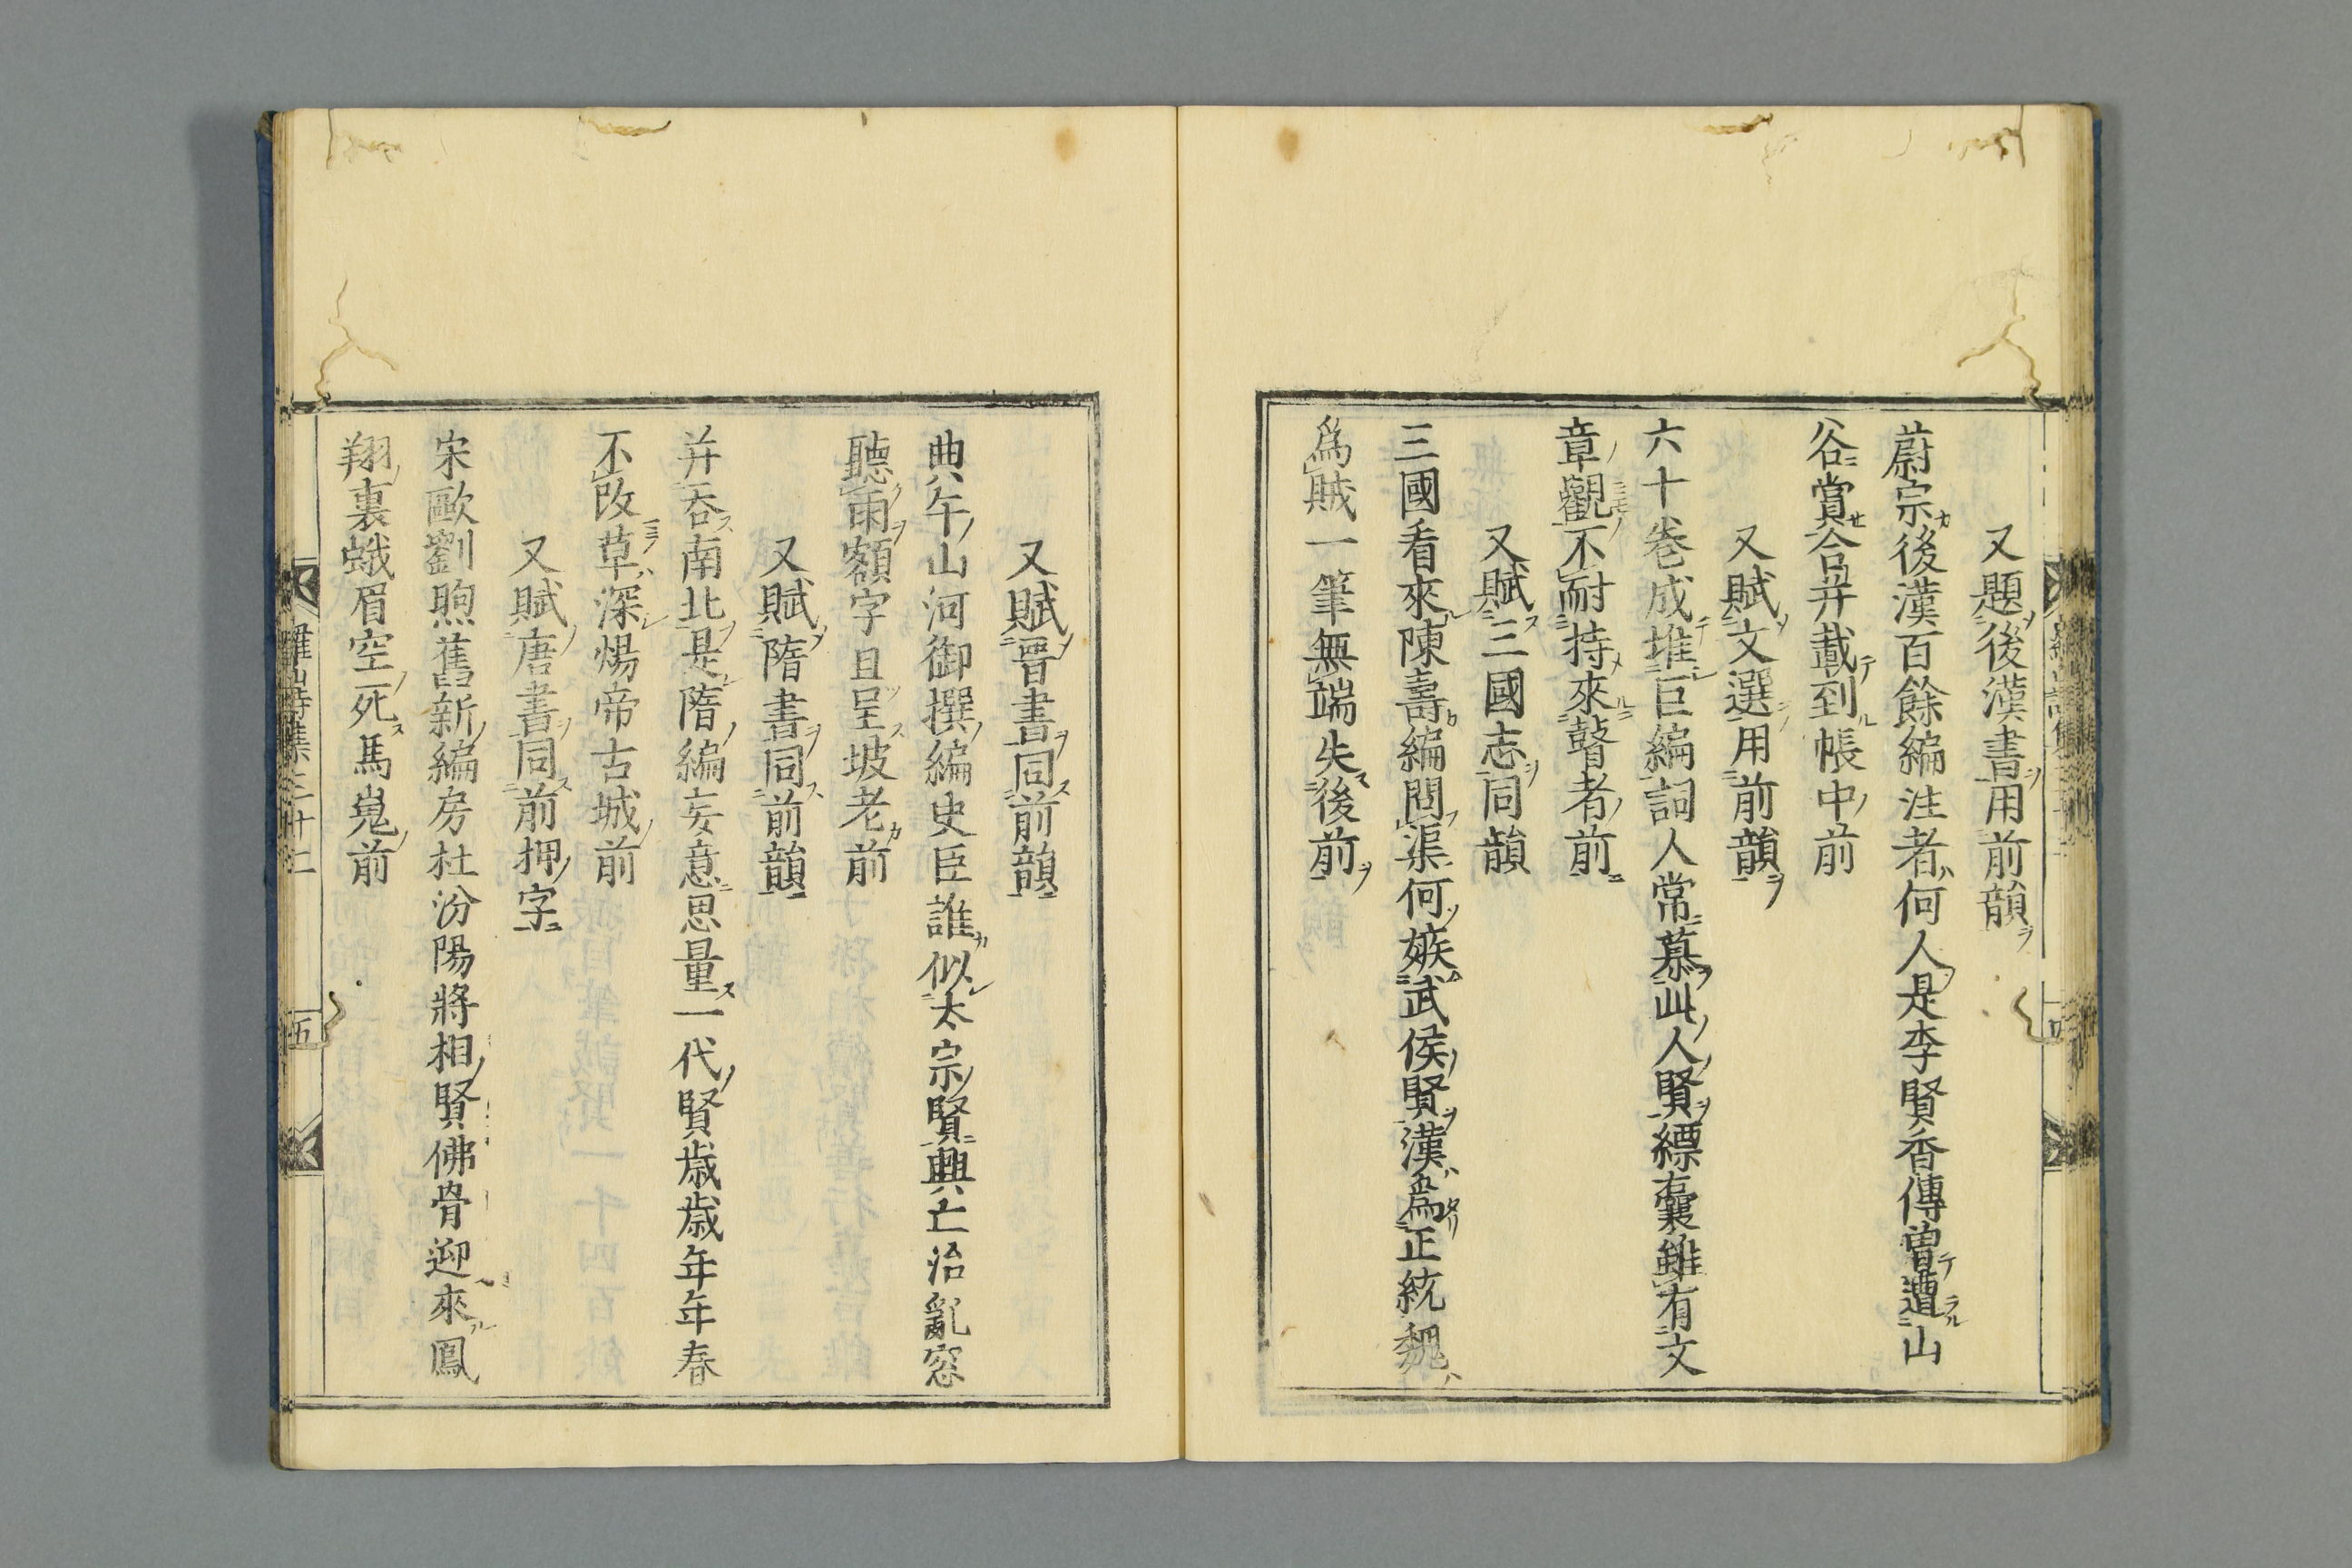 又題後漢書用前韻
蔚宗後漢百餘編注者何人是李賢香傳曽遭山
谷賞合并載到帳中前
又賦文選用前韻
六十卷成堆巨編詞人常慕此人賢縹囊雖有文
章觀不耐持來瞽者前
又賦三國志同韻
三國看來陳壽編問渠何嫉武侯賢漢爲正統魏
爲賊一筆無端失後前
又賦晉書同前韻
典午山河御撰編史臣誰似太宗賢興亡治亂窓
聽雨額字且呈坡老前
又賦隋書同前韻
并吞南北是隋編妄意思量一代賢歳歳年年春
不改草深煬帝古城前
又賦唐書同前押字
宋歐劉煦舊新編房杜汾陽將相賢佛骨迎來鳳
翔裏蛾眉空死馬嵬前
羅山詩集 三十二
五